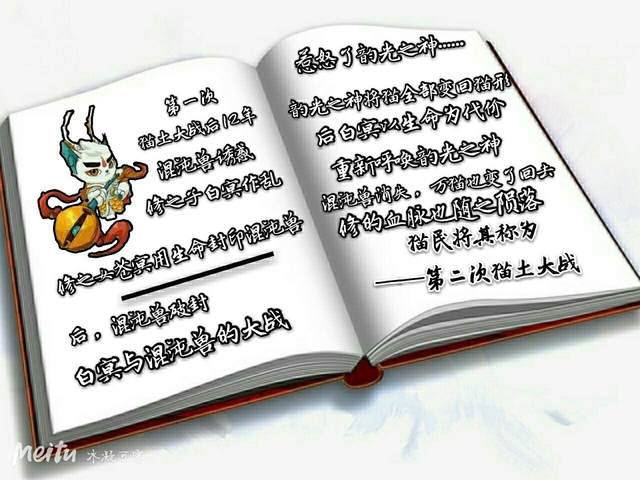 第一次
猫土大战后12年
混沌兽诱惑
修之子白冥作乱
修之女苍冥用生命封印混沌兽
后，混沌兽破封
白冥与混沌兽的大战
惹怒了韵光之神……
韵光之神将猫全部变回猫形
后白冥以生命为代价
重新呼唤韵光之神
混沌兽消失，万猫也变了回去
修的血脉也随之陨落
猫民将其称为
——第二次猫土大战
Meitu